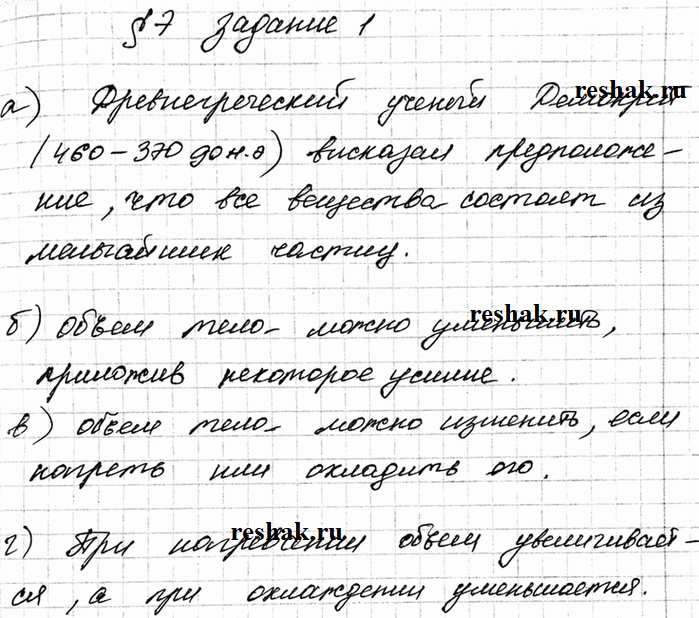 §7 задание 1
а) Древнегреческий ученый Демокрит
(460-370 до н.э) висказал предположе-
ние, что все вещества состоят из
мельчайших частиц.
б) Объем тела можно уменьшить,
приложив некоторое усилие.
в) объем тела можно изменить, если
нагреть или охладить его.
г) При нагревении объем увеличивает-
ся, а при охлаждении уменьшается.
reshak.ru
reshak.ru
reshak.ru